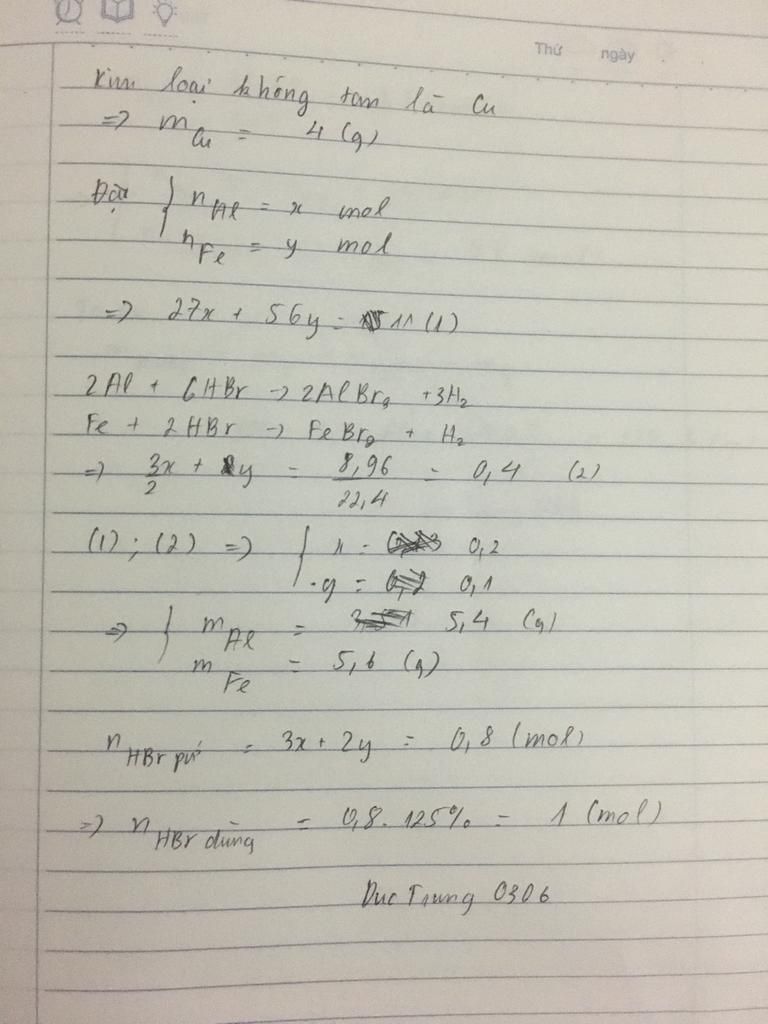 Thứ ngày
Kim loại không tan là Cu
=> m Cu = 4 (g)
Đặt { n Al = x mol
n Fe = y mol
=> 27x + 56y = 11 (1)
2Al + 6HBr -> 2AlBr3 + 3H2
Fe + 2HBr -> FeBr2 + H2
=> 3x/2 + y = 8,96/22,4 = 0,4 (2)
(1) ; (2) => { x = 0,2
y = 0,1
=> { m Al = 5,4 (g)
m Fe = 5,6 (g)
n HBr pứ = 3x + 2y = 0,8 (mol)
=> n HBr dùng = 0,8 . 125% = 1 (mol)
Duc Trung 0306